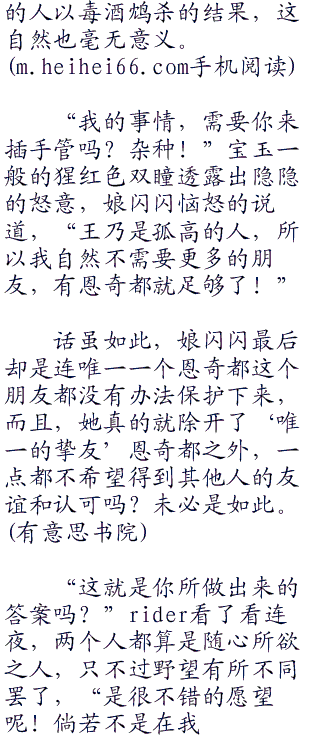 的人以毒酒鸩杀的结果，这
自然也毫无意义。
(m.heihei66.com手机阅读)
“我的事情，需要你来
插手管吗？杂种！”宝玉一
般的猩红色双瞳透露出隐隐
的怒意，娘闪闪恼怒的说
道，“王乃是孤高的人，所
以我自然不需要更多的朋
友，有恩奇都就足够了！”
话虽如此，娘闪闪最后
却是连唯一一个恩奇都这个
朋友都没有办法保护下来，
而且，她真的就除开了‘唯
一的挚友’恩奇都之外，一
点都不希望得到其他人的友
谊和认可吗？未必是如此。
(有意思书院)
“这就是你所做出来的
答案吗？”rider看了看连
夜，两个人都算是随心所欲
之人，只不过野望有所不同
罢了，“是很不错的愿望
呢！倘若不是在我